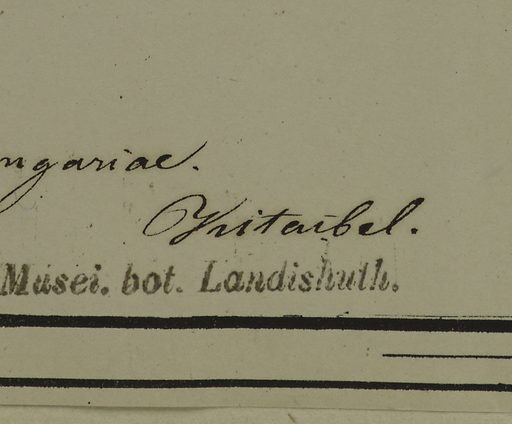 ngariae.
Kitaibel.
Musei. bot. Landishuth.